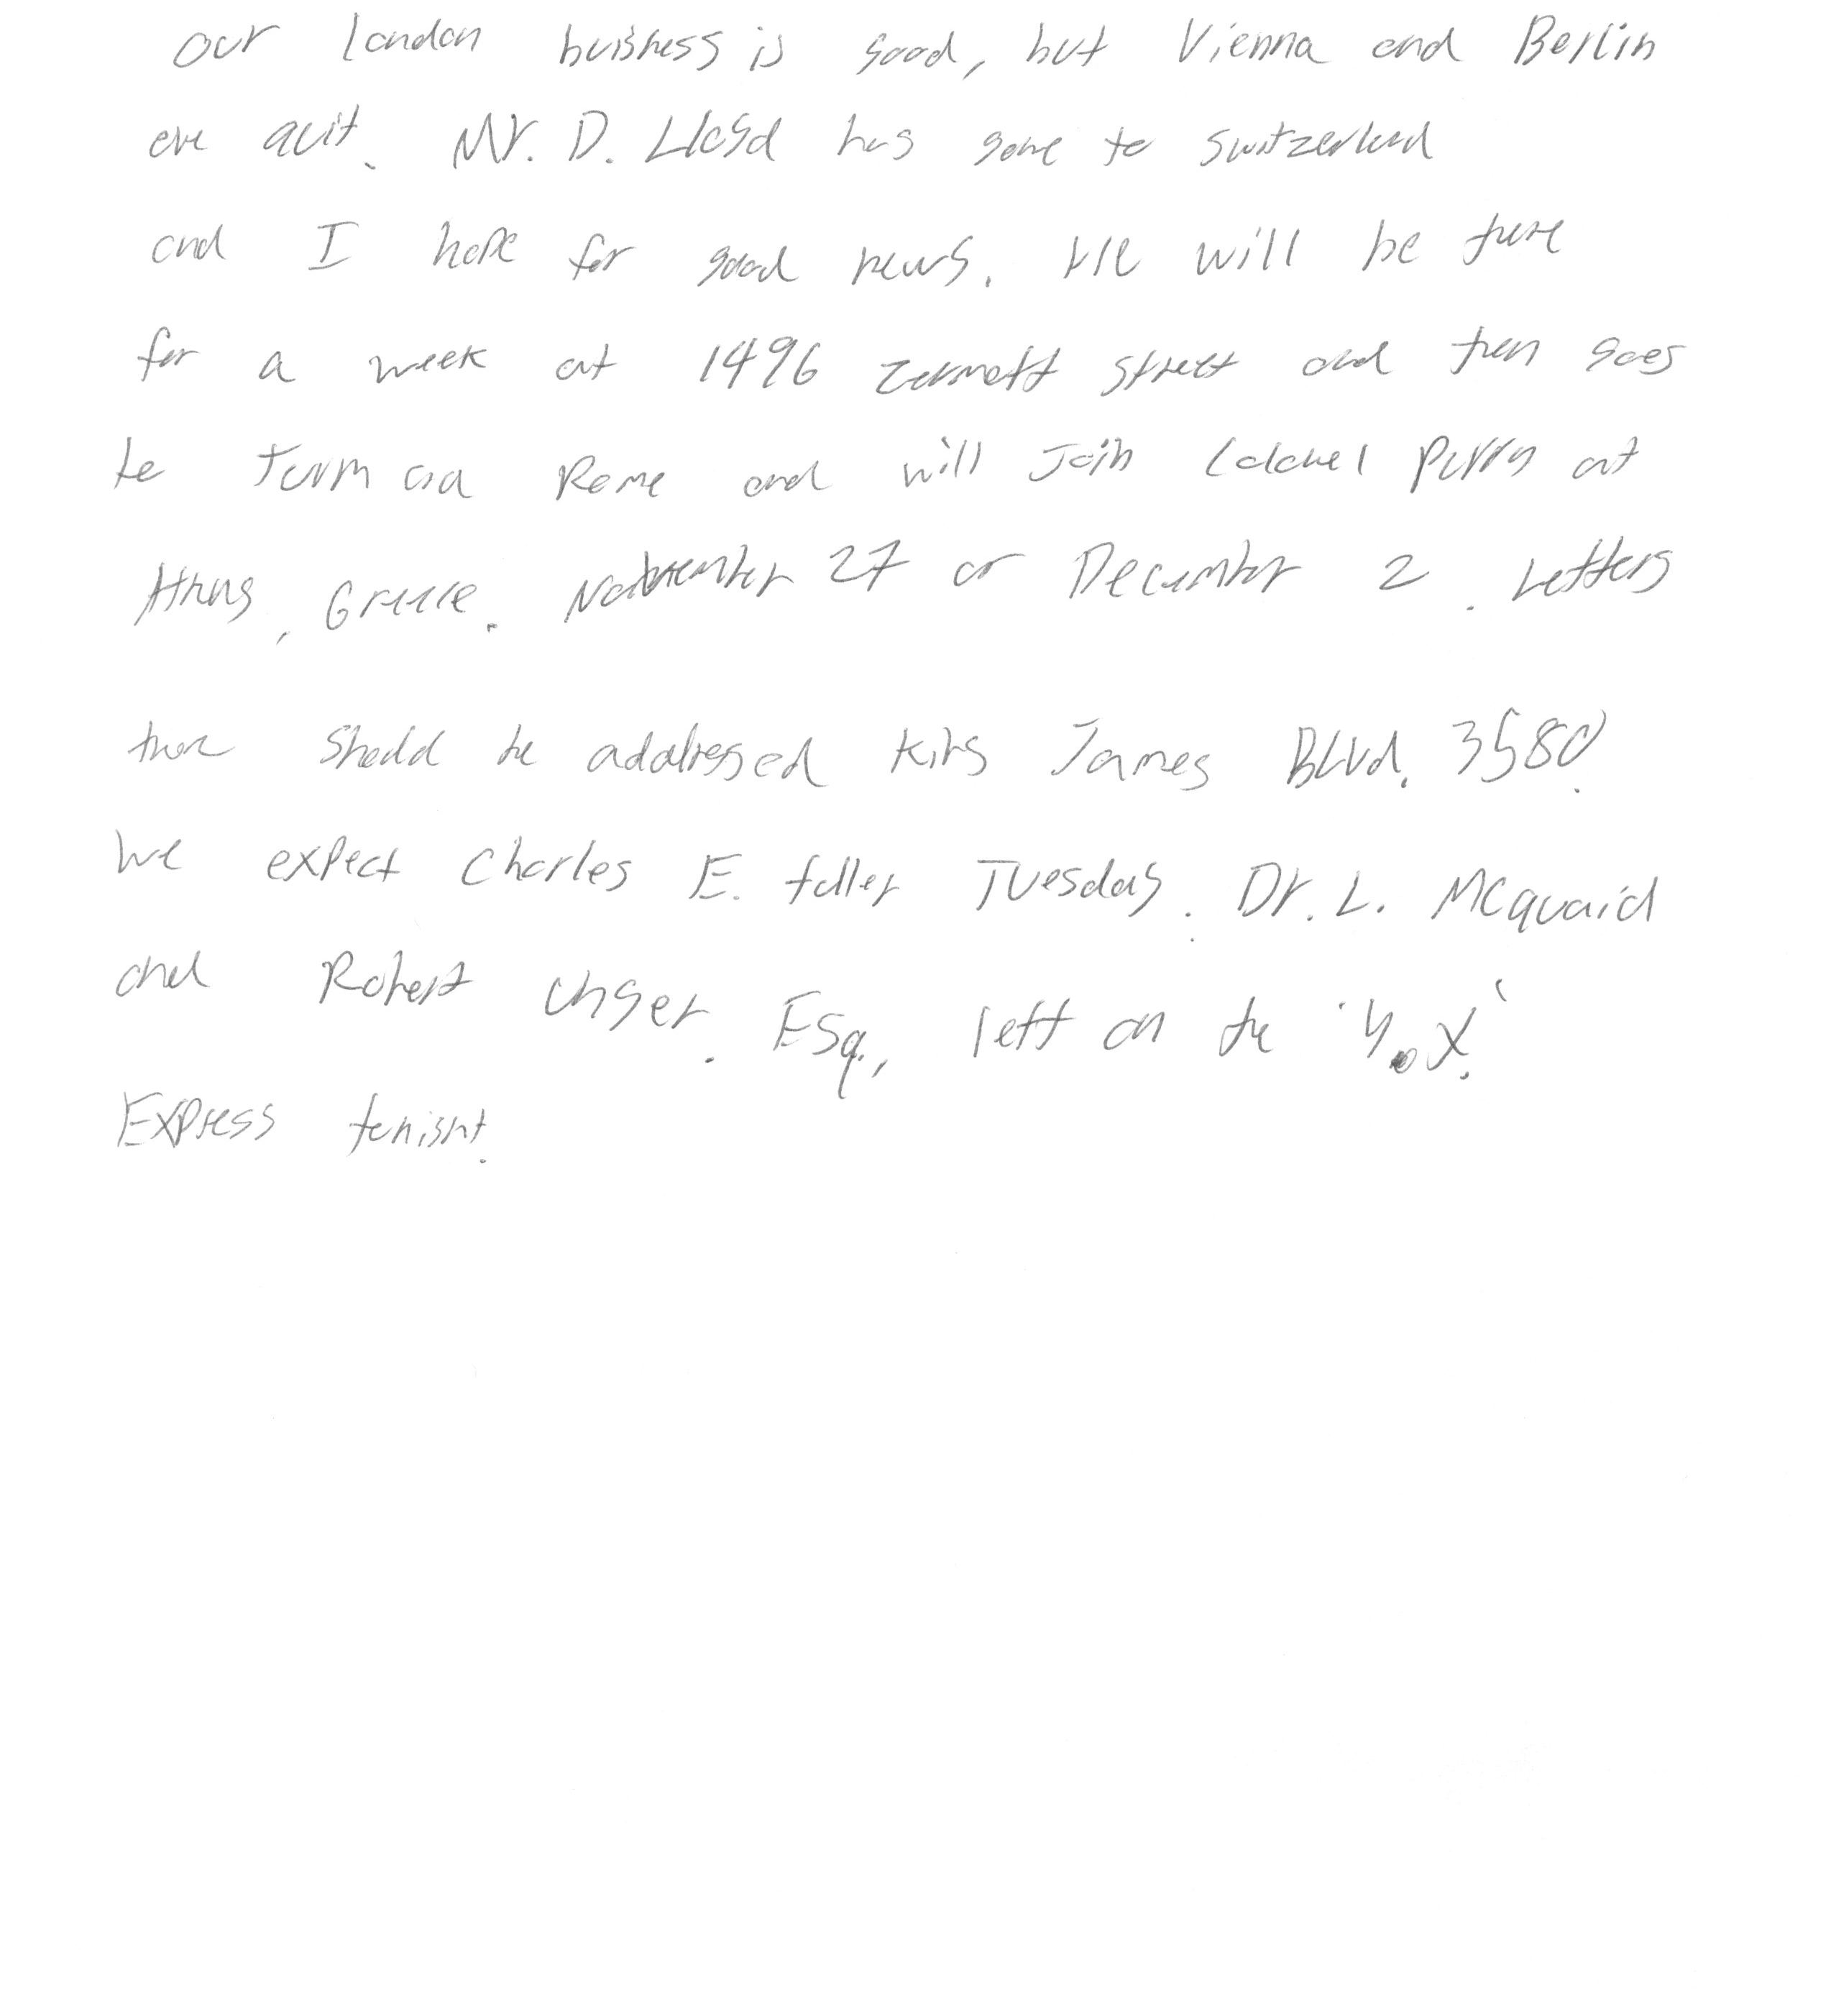 Our London buisness is good, but Vienna and Berlin
are quit. Mr. D. Lloyd has gone to Switzerland
and I hope for good news. He will be there
for a week at 1496 Zermott Street and then goes
to Turin and Rome and will Join Colonel Perry at
Athens, Greece. November 27 or December 2. Letters
there should be addressed King James Blvd. 3580.
We expect Charles E. Fuller Tuesday. Dr. L. McQuaid
and Robert Unger. Esq., left on the "Y.X."
Express tonight.